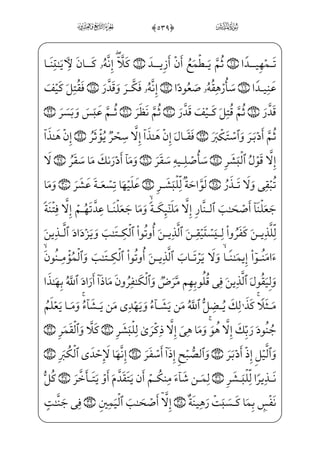 الجزء التاسع والعشرون ﴿٥٣٩﴾ سورة المدثر
تَمْهِيدًا ۝١٤ ثُمَّ يَطْمَعُ أَنْ أَزِيدَ ۝١٥ كَلَّا ۖ إِنَّهُۥ كَانَ لِأَيَٰتِنَا
عَنِيدًا ۝١٦ سَأُرْهِقُهُۥ صَعُودًا ۝١٧ إِنَّهُۥ فَكَّرَ وَقَدَّرَ ۝١٨ فَقُتِلَ كَيْفَ
قَدَّرَ ۝١٩ ثُمَّ قُتِلَ كَيْفَ قَدَّرَ ۝٢٠ ثُمَّ نَظَرَ ۝٢١ ثُمَّ عَبَسَ وَبَسَرَ ۝٢٢
ثُمَّ أَدْبَرَ وَٱسْتَكْبَرَ ۝٢٣ فَقَالَ إِنْ هَٰذَآ إِلَّا سِحْرٌ يُؤْثَرُ ۝٢٤ إِنْ هَٰذَآ
إِلَّا قَوْلُ ٱلْبَشَرِ ۝٢٥ سَأُصْلِيهِ سَقَرَ ۝٢٦ وَمَآ أَدْرَىٰكَ مَا سَقَرُ ۝٢٧ لَا
تُبْقِى وَلَا تَذَرُ ۝٢٨ لَوَّاحَةٌ لِّلْبَشَرِ ۝٢٩ عَلَيْهَا تِسْعَةَ عَشَرَ ۝٣٠ وَمَا
جَعَلْنَآ أَصْحَٰبَ ٱلنَّارِ إِلَّا مَلَٰٓئِكَةً ۙ وَمَا جَعَلْنَا عِدَّتَهُمْ إِلَّا فِتْنَةً
لِّلَّذِينَ كَفَرُوا۟ لِيَسْتَيْقِنَ ٱلَّذِينَ أُوتُوا۟ ٱلْكِتَٰبَ وَيَزْدَادَ ٱلَّذِينَ
ءَامَنُوٓا۟ إِيمَٰنًا ۙ وَلَا يَرْتَابَ ٱلَّذِينَ أُوتُوا۟ ٱلْكِتَٰبَ وَٱلْمُؤْمِنُونَ ۙ
وَلِيَقُولَ ٱلَّذِينَ فِى قُلُوبِهِم مَّرَضٌ وَٱلْكَٰفِرُونَ مَاذَآ أَرَادَ ٱللَّهُ بِهَٰذَا
مَثَلًا ۚ كَذَٰلِكَ يُضِلُّ ٱللَّهُ مَن يَشَآءُ وَيَهْدِى مَن يَشَآءُ ۚ وَمَا يَعْلَمُ
جُنُودَ رَبِّكَ إِلَّا هُوَ ۚ وَمَا هِىَ إِلَّا ذِكْرَىٰ لِلْبَشَرِ ۝٣١ كَلَّا وَٱلْقَمَرِ ۝٣٢
وَٱلَّيْلِ إِذْ أَدْبَرَ ۝٣٣ وَٱلصُّبْحِ إِذَآ أَسْفَرَ ۝٣٤ إِنَّهَا لَإِحْدَى ٱلْكُبَرِ ۝٣٥
نَذِيرًا لِّلْبَشَرِ ۝٣٦ لِمَن شَآءَ مِنكُمْ أَن يَتَقَدَّمَ أَوْ يَتَأَخَّرَ ۝٣٧ كُلُّ
نَفْسٍۭ بِمَا كَسَبَتْ رَهِينَةٌ ۝٣٨ إِلَّآ أَصْحَٰبَ ٱلْيَمِينِ ۝٣٩ فِى جَنَّٰتٍ